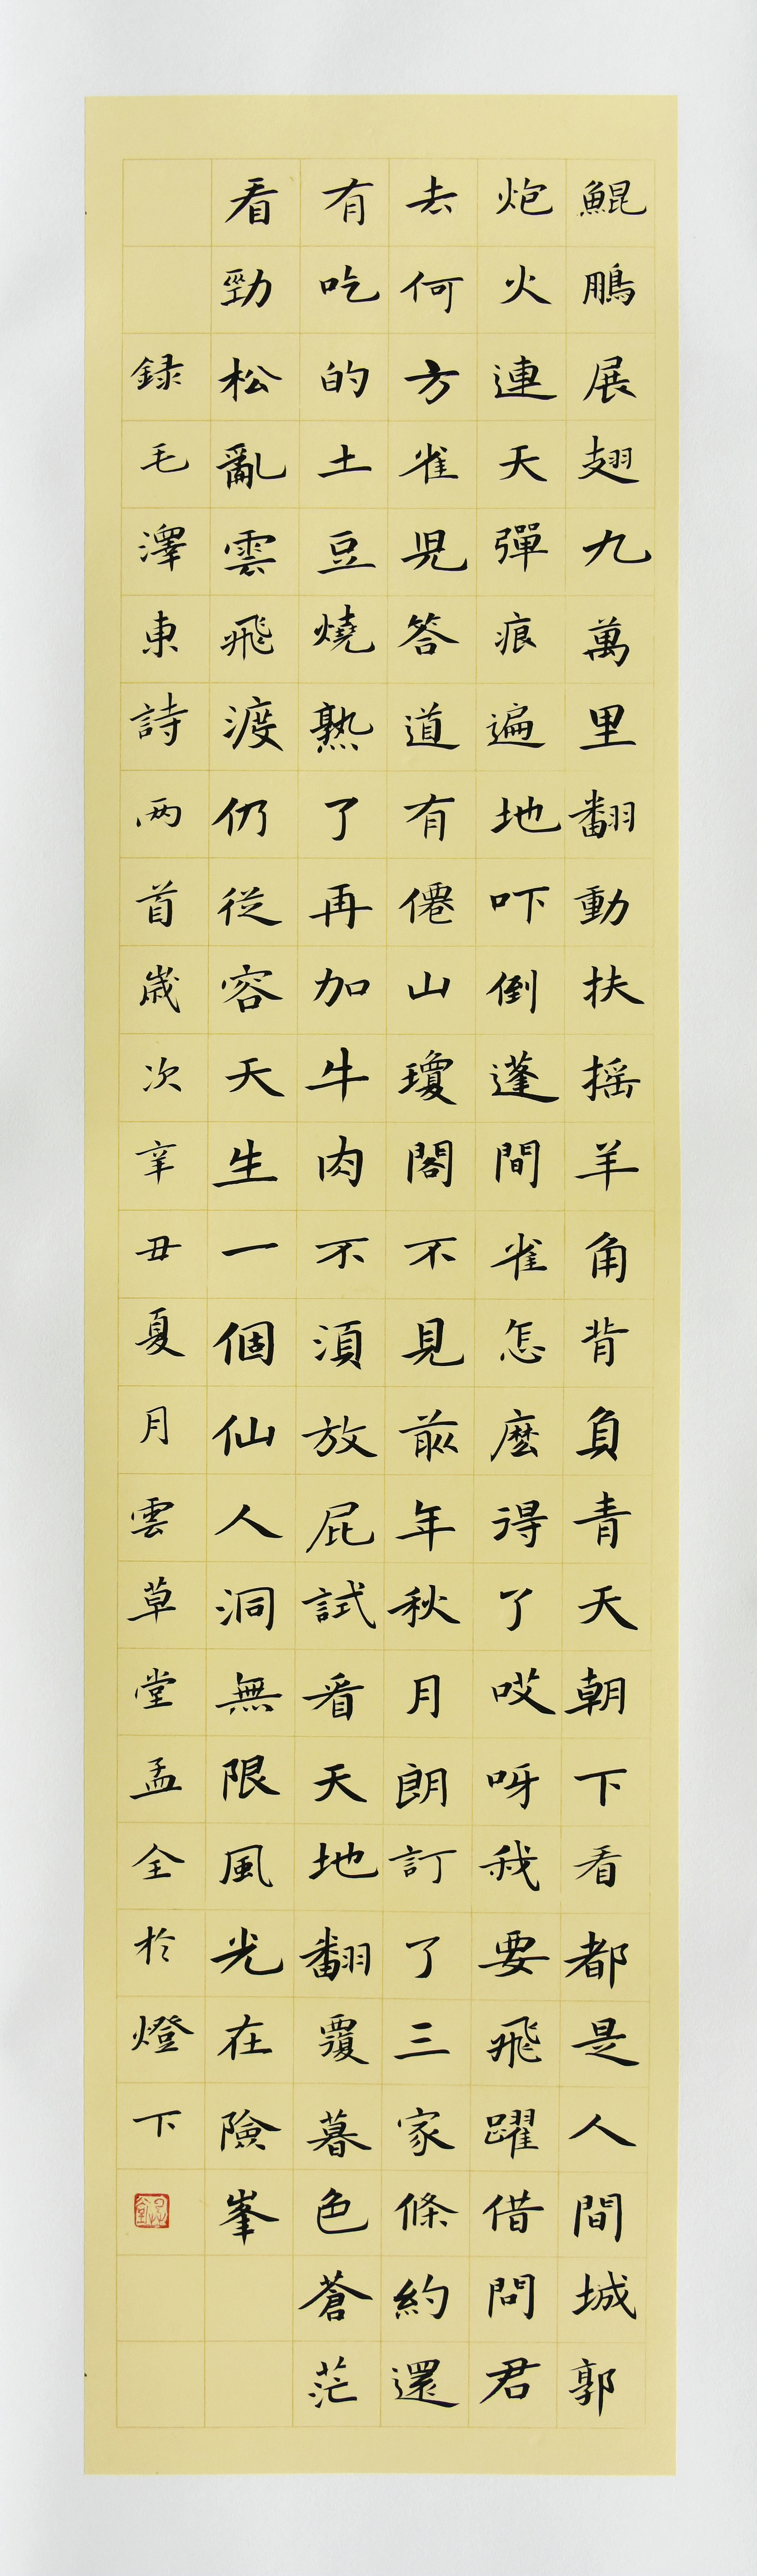 鯤鵬展翅九萬里翻動扶摇羊角背負青天朝下看都是人間城郭
炮火連天彈痕遍地吓倒蓬間雀怎麽得了哎呀我要飛躍借問君
去何方雀兒答道有僊山瓊閣不見前年秋月朗訂了三家條約還
有吃的土豆燒熟了再加牛肉不須放屁試看天地翻覆暮色蒼茫
看勁松亂雲飛渡仍從容天生一個仙人洞無限風光在險峯
録毛澤東詩两首歲次辛丑夏月雲草堂孟全於燈下